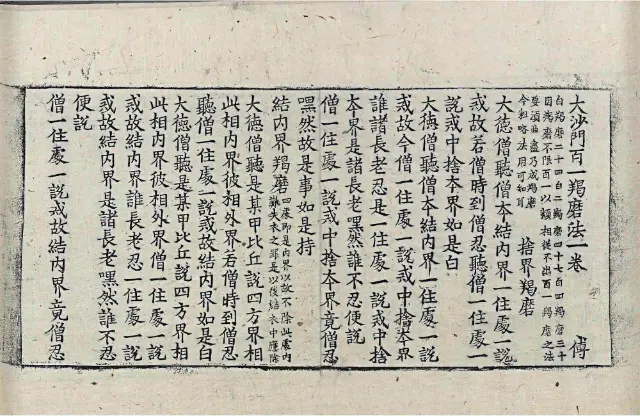 大沙門百一羯磨法一卷 傅
白羯磨二十四白二羯磨四十七白四羯磨三十
因羯磨不限百以類相從不出百一羯磨之法
要須曲盡乃成羯磨
今粗略法用可知耳 捨界羯磨
大德僧聽僧本結內界一住處一說
戒故若僧時到僧忍聽僧一住處一
說戒中捨本界如是白
大德僧聽僧本結內界一住處一說
戒故今僧一住處一說戒中捨本界
誰諸長老忍是一住處一說戒中捨
本界是諸長老嘿然誰不忍便說
僧一住處一說戒中捨本界竟僧忍
嘿然故是事如是持
結內界羯磨 四處即是內界以故不除此處內
離失衣之罪是以後結衣中應除
大德僧聽是某甲比丘說四方界相
此相內界彼相外界若僧時到僧忍
聽僧一住處一說戒故結內界如是白
大德僧聽是某甲比丘說四方界相
此相內界彼相外界僧一住處一說
戒故結內界誰長老忍僧一住處一說
戒故結內界是諸長老嘿然誰不忍
便說
僧一住處一說戒故結內界竟僧忍